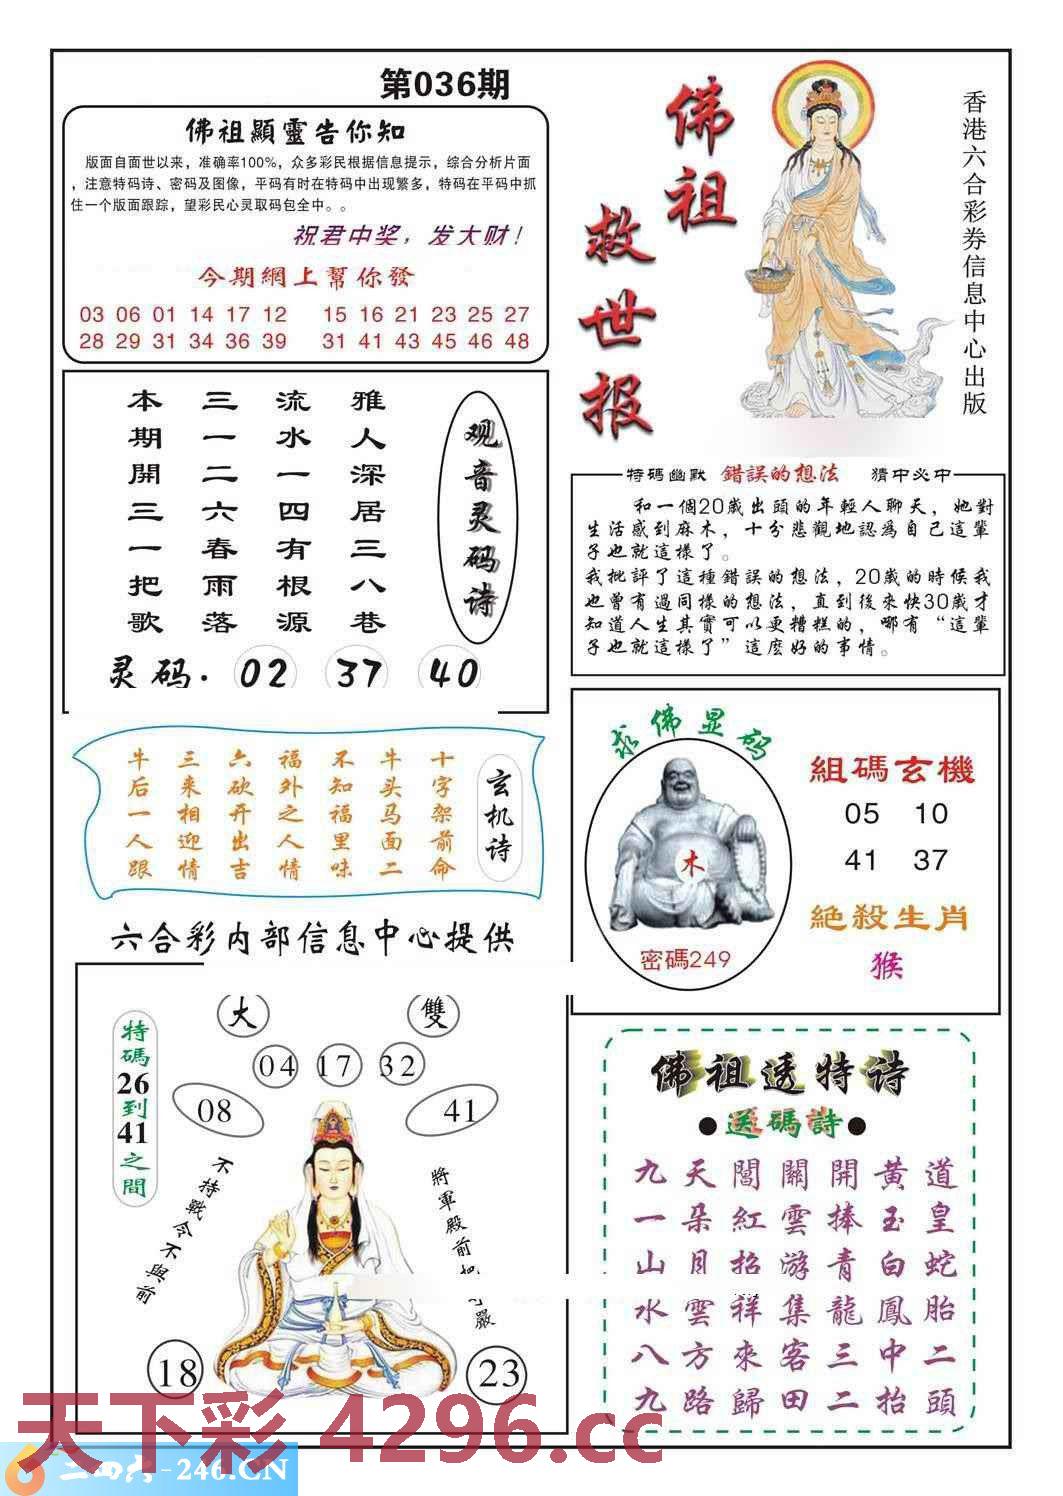 第036期
佛祖顯靈告你知
版面自面世以来，准确率100%，众多彩民根据信息提示，综合分析片面
，注意特码诗、密码及图像，平码有时在特码中出现繁多，特码在平码中抓
住一个版面跟踪，望彩民心灵取码包全中。。
祝君中奖，发大财！
今期網上幫你發
03 06 01 14 17 12 15 16 21 23 25 27
28 29 31 34 36 39 31 41 43 45 46 48
佛祖
救世报
香港六合彩券信息中心出版
观音灵码诗
雅人深居三八巷
流水一四有根源
三一二六春雨落
本期開三一把歌
灵码. 02 37 40
特碼幽默 錯誤的想法 猜中必中
和一個20歲出頭的年輕人聊天，她對
生活感到麻木，十分悲觀地認為自己這輩
子也就這樣了。
我批評了這種錯誤的想法，20歲的時候我
也曾有過同樣的想法，直到後來快30歲才
知道人生其實可以更糟糕的，哪有“這輩
子也就這樣了”這麼好的事情。
玄机诗
十字架前命
牛头马面二
不知福里味
福外之人情
六砍开出吉
三来相迎情
牛后一人跟
求佛显码
木
密碼249
組碼玄機
05 10
41 37
絕殺生肖
猴
六合彩内部信息中心提供
特碼26到41之間
大 雙
04 17 32
08 41
不持戰令不與前
將軍殿前
嚴
18 23
佛祖透特诗
●送碼詩●
九天閶關開黃道
一朵紅雲捧玉皇
山月招游青白蛇
水雲祥集龍鳳胎
八方來客三中二
九路歸田二抬頭
天下彩 4296.cc
二四六-246.CN